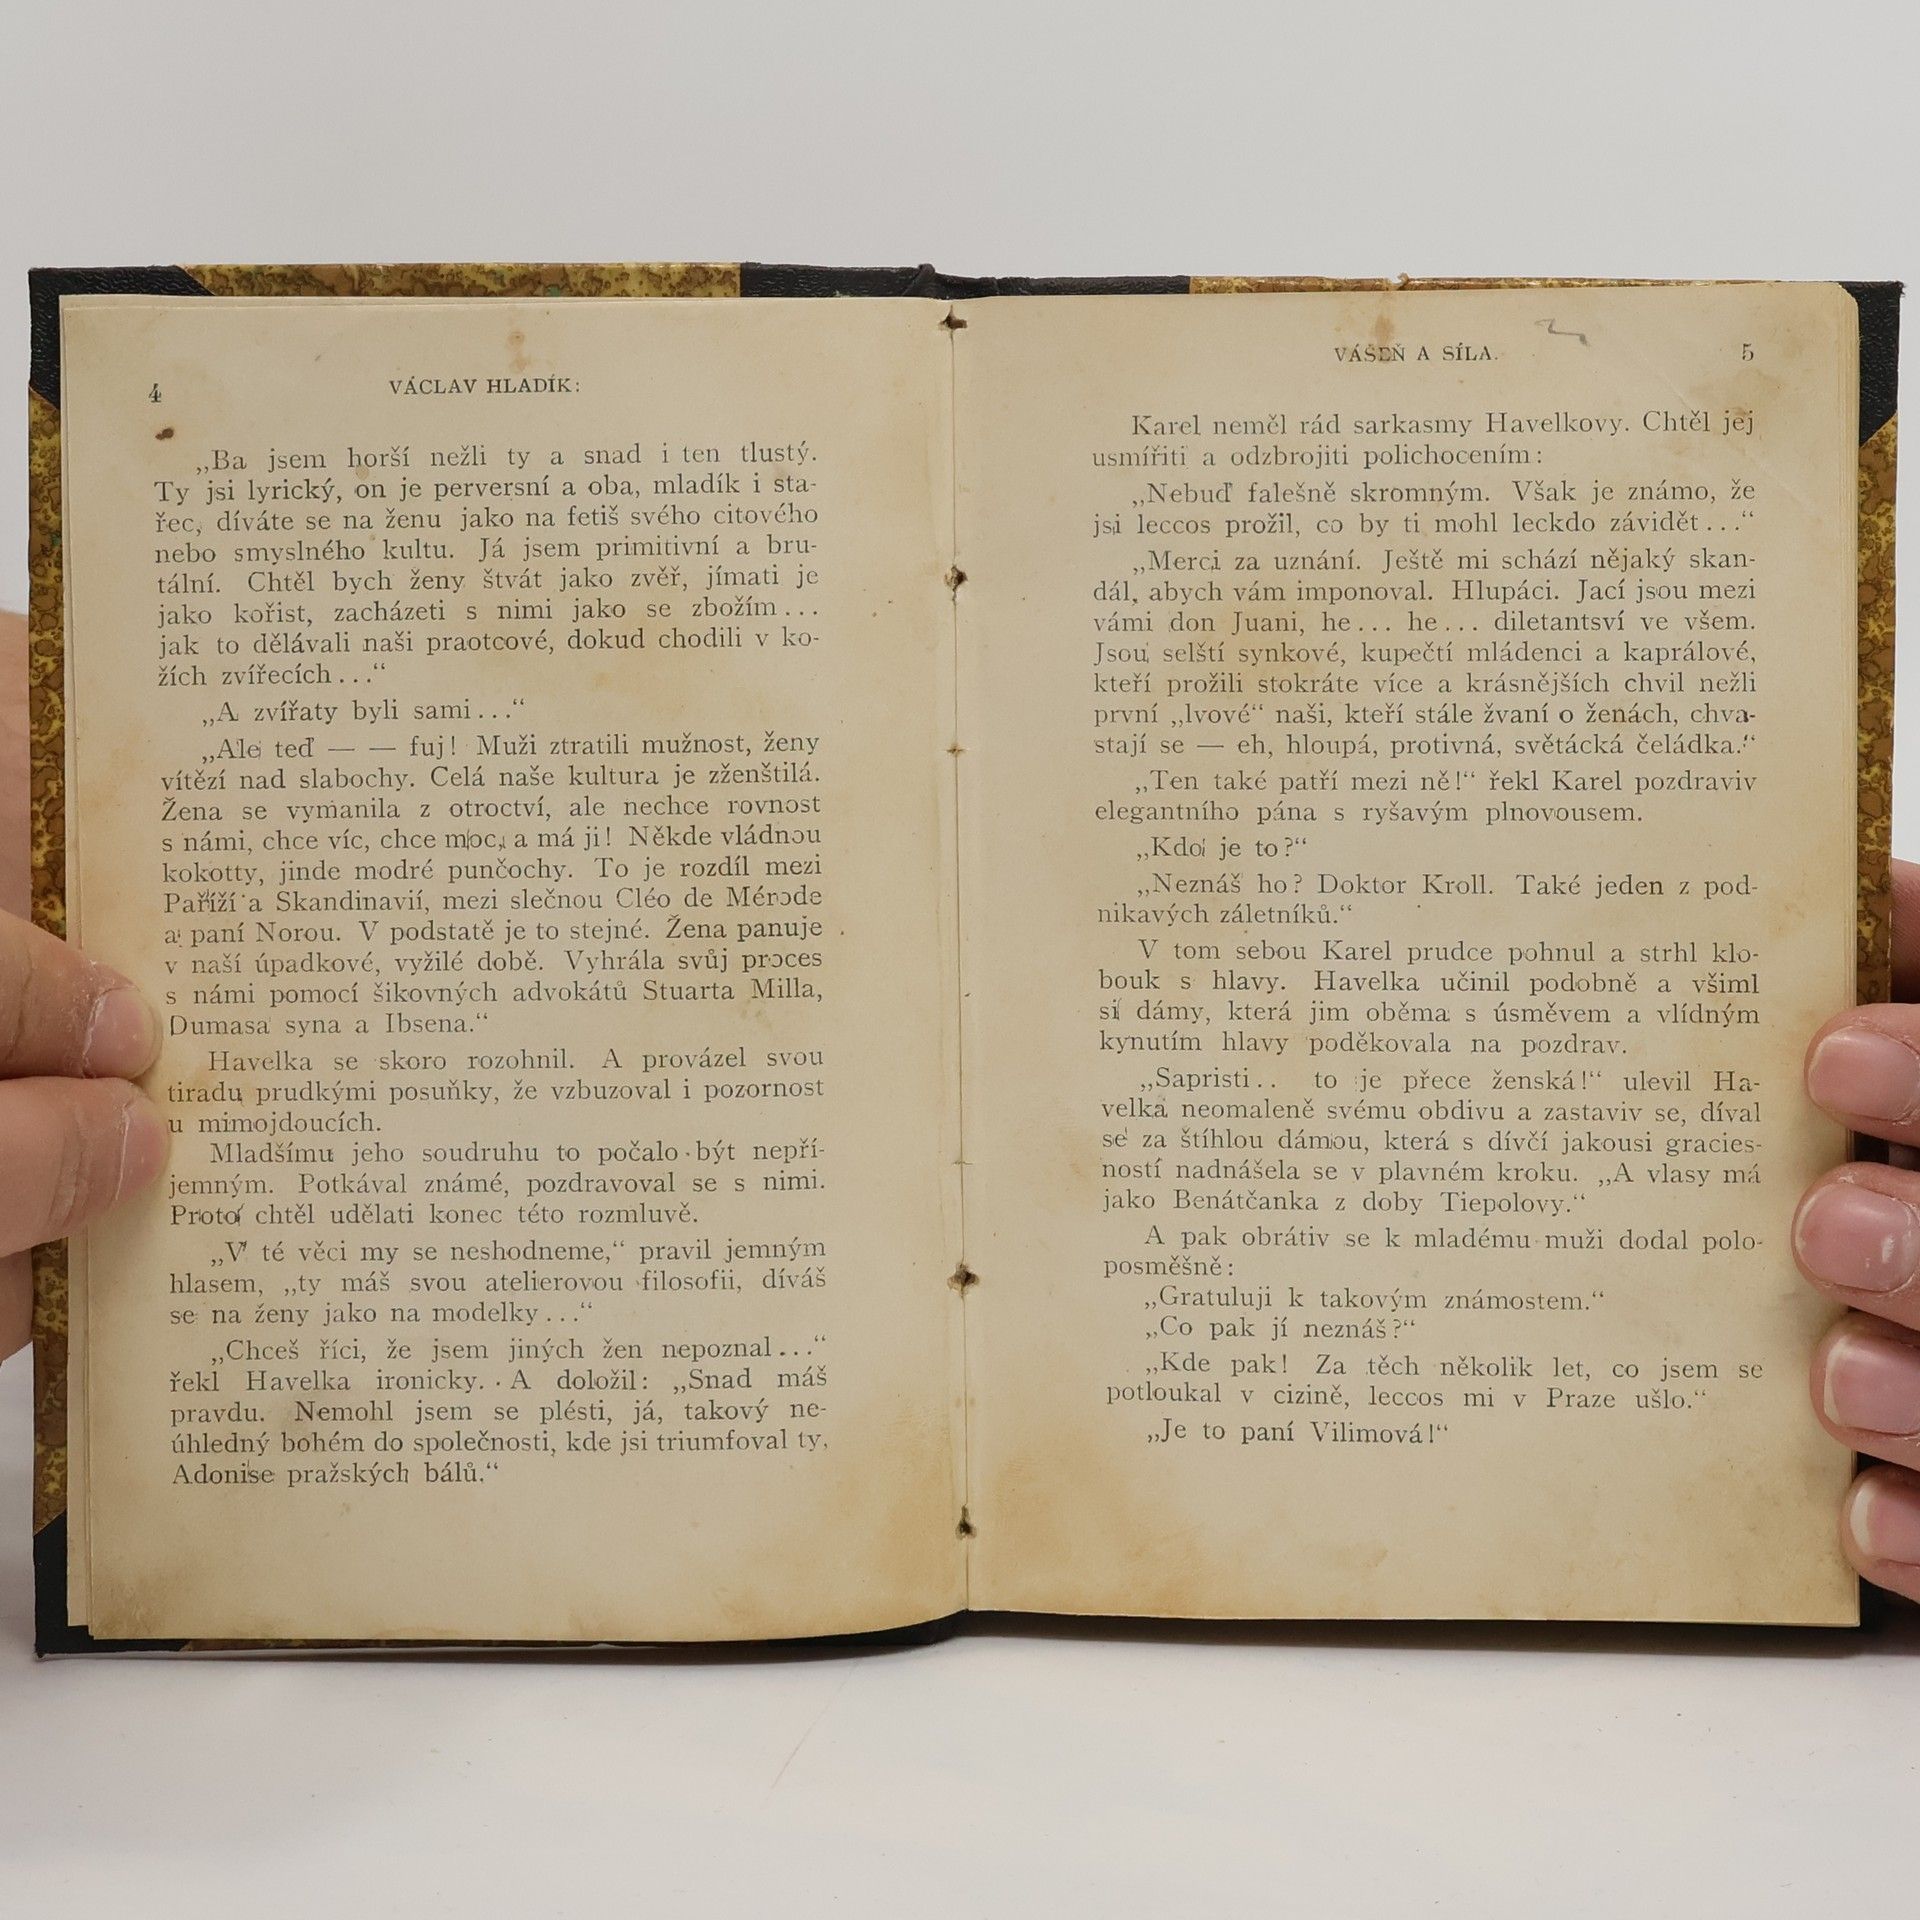 4
VÁCLAV HLADÍK:
„Ba jsem horší nežli ty a snad i ten tlustý.
Ty jsi lyrický, on je perversní a oba, mladík i sta-
řec, díváte se na ženu jako na fetiš svého citového
nebo smyslného kultu. Já jsem primitivní a bru-
tální. Chtěl bych ženy štvát jako zvěř, jímati je
jako kořist, zacházeti s nimi jako se zbožím...
jak to dělávali naši praotcové, dokud chodili v ko-
žích zvířecích...“
„A zvířaty byli sami...“
„Ale teď — — fuj! Muži ztratili mužnost, ženy
vítězí nad slabochy. Celá naše kultura je zženštilá.
Žena se vymanila z otroctví, ale nechce rovnost
s námi, chce víc, chce moc, a má ji! Někde vládnou
kokotty, jinde modré punčochy. To je rozdíl mezi
Paříží a Skandinavií, mezi slečnou Cléo de Mérode
a paní Norou. V podstatě je to stejné. Žena panuje
v naší úpadkové, vyžilé době. Vyhrála svůj proces
s námi pomocí šikovných advokátů Stuarta Milla,
Dumasa syna a Ibsena.“
Havelka se skoro rozohnil. A provázel svou
tiradu prudkými posuňky, že vzbuzoval i pozornost
u mimojdoucích.
Mladšímu jeho soudruhu to počalo být nepří-
jemným. Potkával známé, pozdravoval se s nimi.
Proto chtěl udělati konec této rozmluvě.
„V té věci my se neshodneme,“ pravil jemným
hlasem, „ty máš svou atelierovou filosofii, díváš
se na ženy jako na modelky...“
„Chceš říci, že jsem jiných žen nepoznal...“
řekl Havelka ironicky. A doložil: „Snad máš
pravdu. Nemohl jsem se plésti, já, takový ne-
úhledný bohém do společnosti, kde jsi triumfoval ty,
Adonise pražských bálů.“
VÁŠEŇ A SÍLA.
5
Karel neměl rád sarkasmy Havelkovy. Chtěl jej
usmířiti a odzbrojiti polichocením:
„Nebuď falešně skromným. Však je známo, že
jsi leccos prožil, co by ti mohl leckdo závidět...“
„Merci za uznání. Ještě mi schází nějaký skan-
dál, abych vám imponoval. Hlupáci. Jací jsou mezi
vámi don Juani, he... he... diletantsví ve všem.
Jsou selští synkové, kupečtí mládenci a kaprálové,
kteří prožili stokráte více a krásnějších chvil nežli
první „lvové“ naši, kteří stále žvaní o ženách, chva-
stají se — eh, hloupá, protivná, světácká čeládka.“
„Ten také patří mezi ně!“ řekl Karel pozdraviv
elegantního pána s ryšavým plnovousem.
„Kdo je to?“
„Neznáš ho? Doktor Kroll. Také jeden z pod-
nikavých záletníků.“
V tom sebou Karel prudce pohnul a strhl klo-
bouk s hlavy. Havelka učinil podobně a všiml
si dámy, která jim oběma s úsměvem a vlídným
kynutím hlavy poděkovala na pozdrav.
„Sapristi.. to je přece ženská!“ ulevil Ha-
velka neomaleně svému obdivu a zastaviv se, díval
se za štíhlou dámou, která s dívčí jakousi gracies-
ností nadnášela se v plavném kroku. „A vlasy má
jako Benátčanka z doby Tiepolovy.“
A pak obrátiv se k mladému muži dodal polo-
posměšně:
„Gratuluji k takovým známostem.“
„Co pak jí neznáš?“
„Kde pak! Za těch několik let, co jsem se
potloukal v cizině, leccos mi v Praze ušlo.“
„Je to paní Vilimová!“